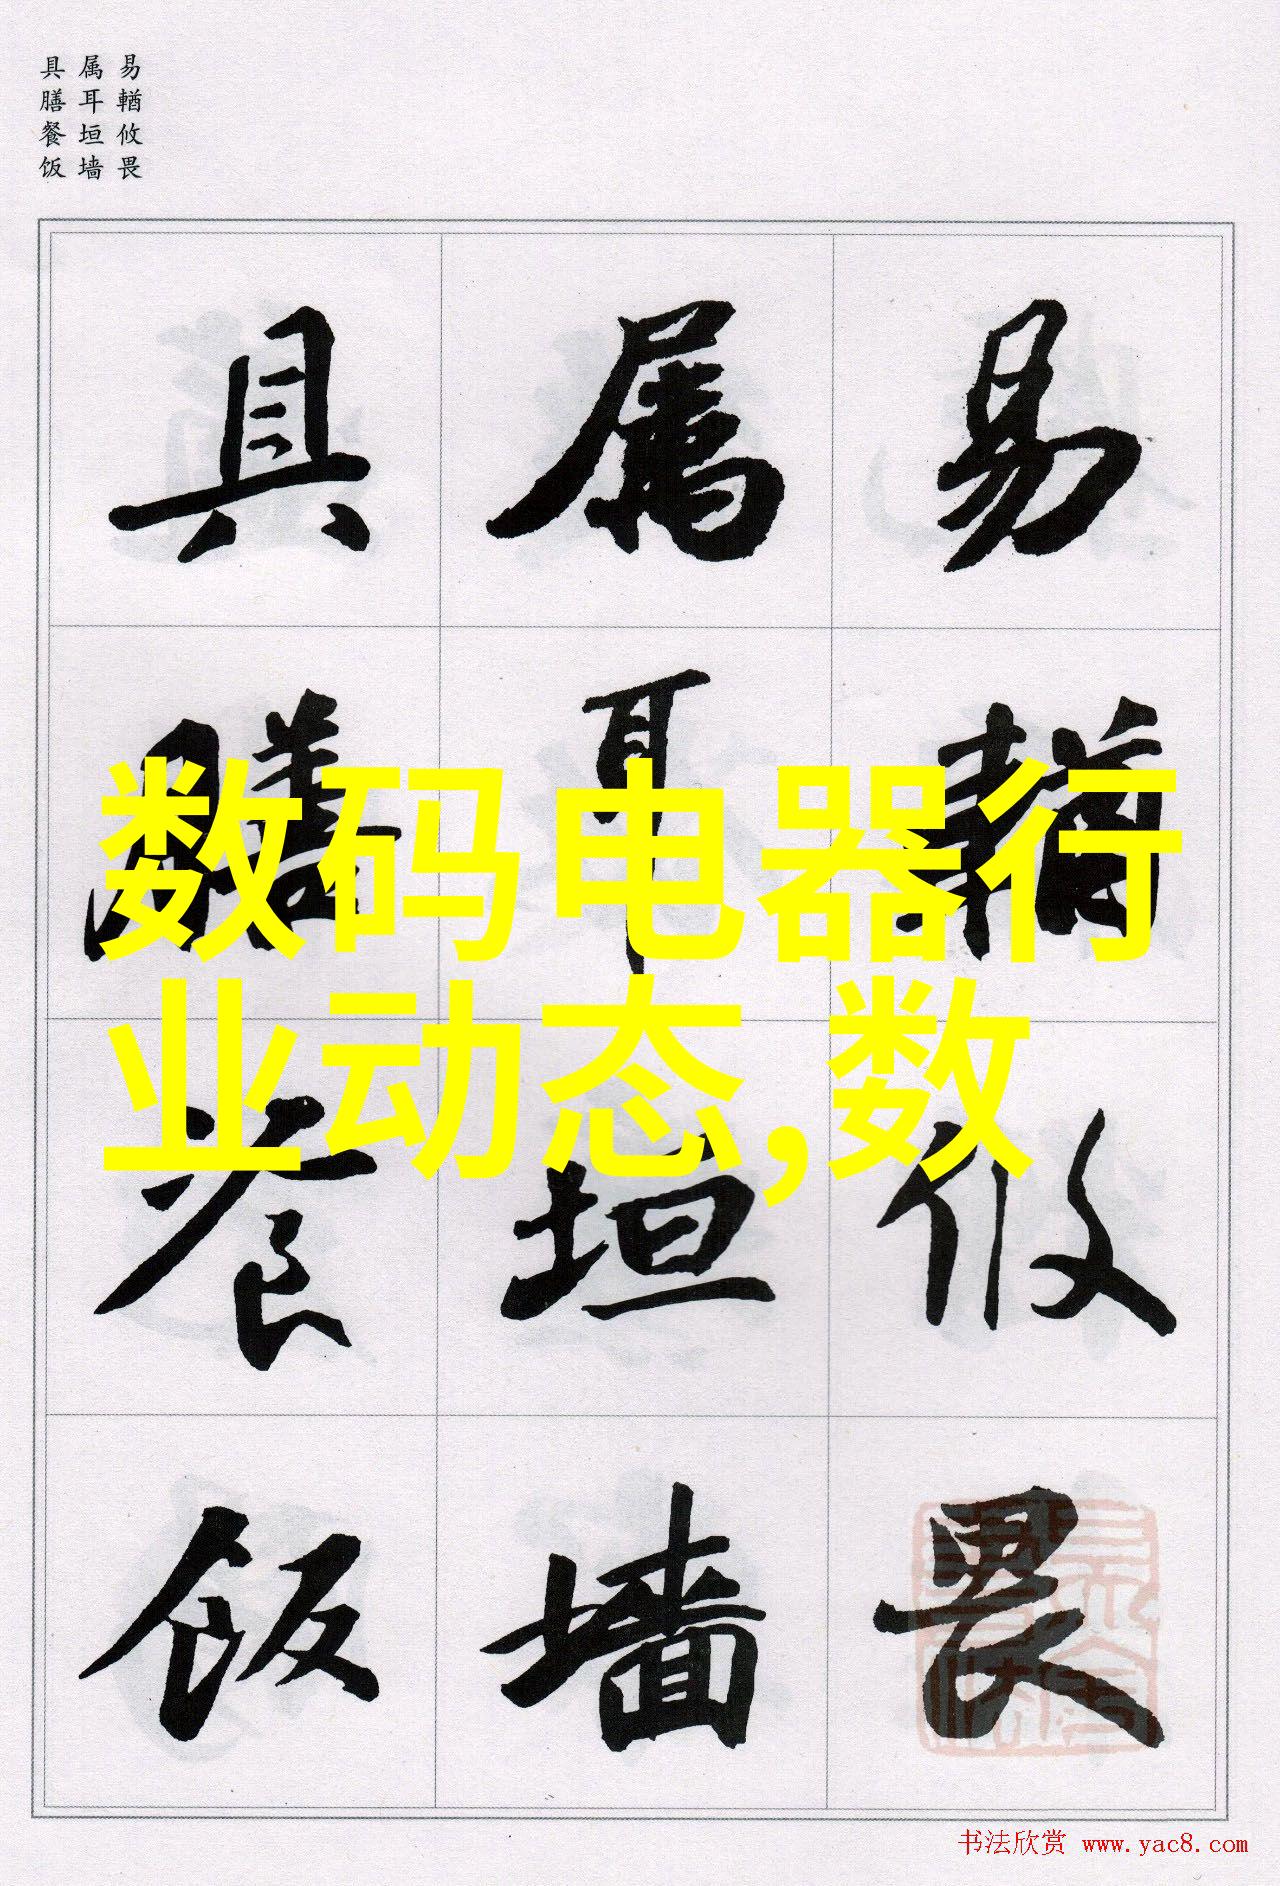 易輶攸畏
属耳垣墙
具膳餐饭
易輶攸畏
属耳垣墙
具膳餐饭
数码电器行
业动态,数
书法欣赏 www.yac8.com